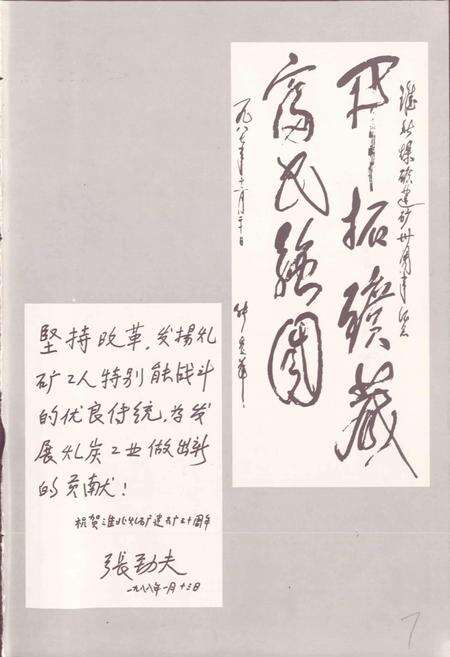 淮北煤矿建矿卅周年纪念
开拓矿藏
富民强国
一九八七年十一月二十日
坚持改革,发扬礼
矿工人特别能战斗
的优良传统,为发
展礼炭工业做出新
的贡献!
祝贺淮北礼矿建矿三十周年
張劲夫
一九八八年一月十三日
7